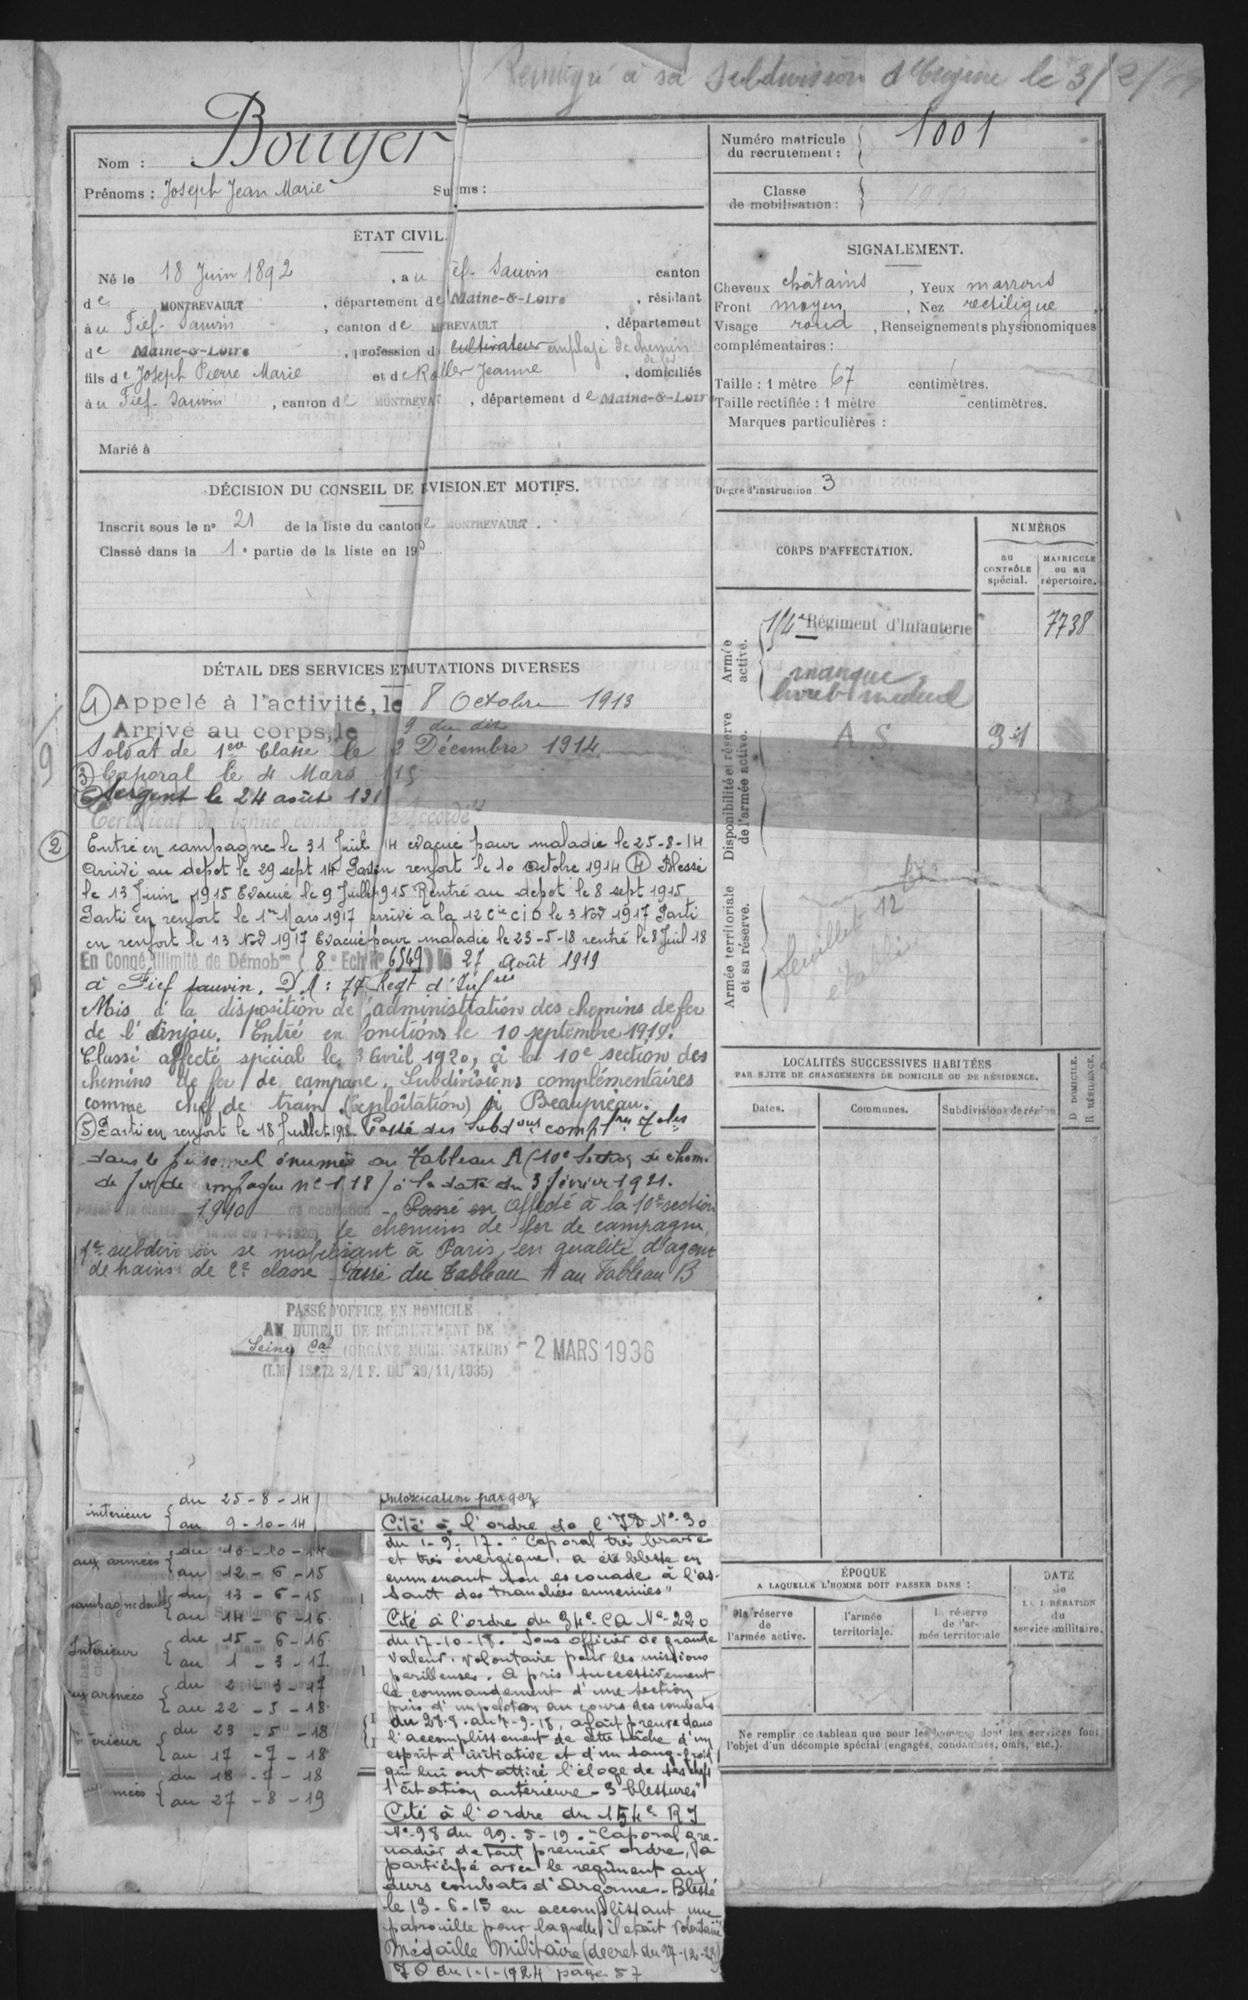 Réintégré à sa subdivision d'origine le 3/2/
Nom : Bouyer
Prénoms : Joseph Jean Marie Su ms :
Numéro matricule du recrutement : 1001
Classe de mobilisation :
ÉTAT CIVIL.
Né le 18 Juin 1892, au ief-Sauvin canton
de MONTREVAULT, département de Maine-&-Loire, résidant
à u Fief-Sauvin, canton de M TREVAULT, département
de Maine-&-Loire, profession d cultivateur employé de chemin de fer
fils de Joseph Pierre Marie et de Ro ller Jeanne, domiciliés
à u Fief-Sauvin, canton de MONTREVA T, département de Maine-&-Loir
Marié à
SIGNALEMENT.
Cheveux châtains, Yeux marrons
Front moyen, Nez rectiligne,
Visage rond, Renseignements physionomiques
complémentaires :
Taille : 1 mètre 67 centimètres.
Taille rectifiée : 1 mètre centimètres.
Marques particulières :
Degré d'instruction 3
DÉCISION DU CONSEIL DE VISION ET MOTIFS.
Inscrit sous le n° 21 de la liste du canton de MONTREVAULT.
Classé dans la 1e partie de la liste en 19
CORPS D'AFFECTATION.
NUMÉROS
au CONTRÔLE spécial.
MATRICULE ou au répertoire.
Armée active.
154e Régiment d'Infanterie 7738
manque
livret médical
Disponibilité et réserve de l'armée active.
A. S. 34
Armée territoriale et sa réserve.
bis
feuillet 12
établi
DÉTAIL DES SERVICES ET MUTATIONS DIVERSES
① Appelé à l'activité, le 8 Octobre 1913
Arrivé au corps, le 9 du dit
Soldat de 1ère Classe le 2 Décembre 1914
③ Caporal le 4 Mars 15
Sergent le 24 août 191
Certificat de bonne conduite Accordé
② Entré en campagne le 31 Juil 14 évacué pour maladie le 25-8-14
Arrivé au dépôt le 29 sept 14 Parti en renfort le 10 octobre 1914 ④ Blessé
le 13 Juin 1915 Evacué le 9 Juillet 915 Rentré au dépôt le 8 sept 1915
Parti en renfort le 1er Mars 1917 arrivé à la 12 Cie CID le 3 Nov 1917 Parti
en renfort le 13 Nov 1917 Evacué pour maladie le 23-5-18 rentré le 8 Juil 18
En Congé illimité de Démobon ( 8e Echn N° 6549) le 27 Août 1919
à Fief Sauvin. D.M : 77 Regt d'Infrie
Mis à la disposition de l'administration des chemins de fer
de l'Anjou. Entré en fonctions le 10 septembre 1919.
Classé affecté spécial le 3 Avril 1920, à la 10e section des
chemins de fer de campane. Subdivisions complémentaires
comme chef de train. (exploitation) à Beaupréau.
⑤ Parti en renfort le 18 Juillet 1918 Passé des Subdons complres 7 les
dans le personnel énuméré au Tableau A (10e Section de chem.
de fer de campagne n° 1118) à la date du 3 février 1921.
Passé à la classe 1910 de mobilisation - Passé en Affecté à la 10e section
la loi du 1-4-1923 de chemins de fer de campagne,
1e subdivision se mobilisant à Paris, en qualité d'agent
de trains de 2e classe Passé du Tableau A au Tableau B
PASSÉ D'OFFICE EN DOMICILE
AU BUREAU DE RECRUTEMENT DE
Seine Cal (ORGANE MOBILISATEUR) - 2 MARS 1936
(I.M. 18272 2/1 F. DU 29/11/1935)
LOCALITÉS SUCCESSIVES HABITÉES
PAR SUITE DE CHANGEMENTS DE DOMICILE OU DE RÉSIDENCE.
D DOMICILE.
R RÉSIDENCE.
Dates.
Communes.
Subdivisions de région
intérieur { du 25-8-14
au 9-10-14
aux armées { du 10-10-14
au 12-6-15
campagne double { du 13-6-15
au 14-6-16.
Intérieur { du 15-6-16.
au 1-3-17.
aux armées { du 2-3-17
au 22-5-18.
Intérieur { du 23-5-18
au 17-7-18
mées { du 18-7-18
au 27-8-19
Intoxication par gaz
Cité à l'ordre de l'ID N° 30
du 1-9-17. "Caporal très brave
et très énergique, a été blessé en
emmenant son escouade à l'as-
saut des tranchées ennemies"
Cité à l'ordre du 34e CA N° 220
du 17-10-18. "Sous officier de grande
valeur, volontaire pour les missions
périlleuses. A pris successivement
le commandement d'une section
puis d'un peloton au cours des combats
du 28-8 au 7-9-18, a fait preuve dans
l'accomplissement de cette tâche d'un
esprit d'initiative et d'un sang-froid
qui lui ont attiré l'éloge de ses chefs
1 citation antérieure - 3 blessures"
Cité à l'ordre du 154e RI
N° 98 du 29-5-19. "Caporal gre-
nadier de tout premier ordre, a
participé avec le régiment aux
durs combats d'Argonne. Blessé
le 13-6-15 en accomplissant une
patrouille pour laquelle il était volontaire
Médaille Militaire (décret du 27-12-23)
JO du 1-1-1924 page 57
ÉPOQUE
A LAQUELLE L'HOMME DOIT PASSER DANS :
DATE de LA LIBÉRATION du service militaire.
la réserve de l'armée active.
l'armée territoriale.
la réserve de l'armée territoriale
Ne remplir ce tableau que pour les hommes dont les services font
l'objet d'un décompte spécial (engagés, condamnés, omis, etc.).